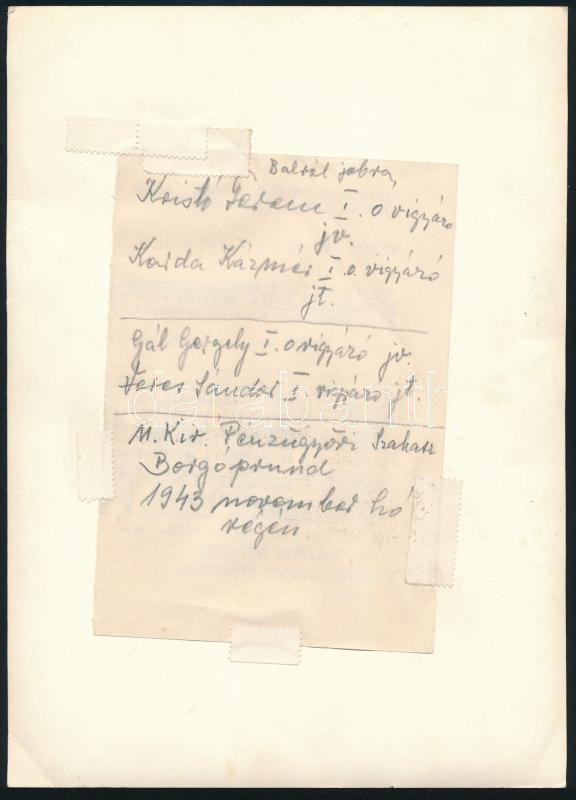 Balról jobra,
Kristó Ferenc I. o vigyázó
jv.
Kajda Kázmér I. o. vigyázó
jt.
Gál Gergely I. o vigyázó jv.
Veres Sándor I vigyázó jt.
M. Kir. Pénzügyőri Szakasz
Borgóprund
1943 november hó
végén.
darabanth